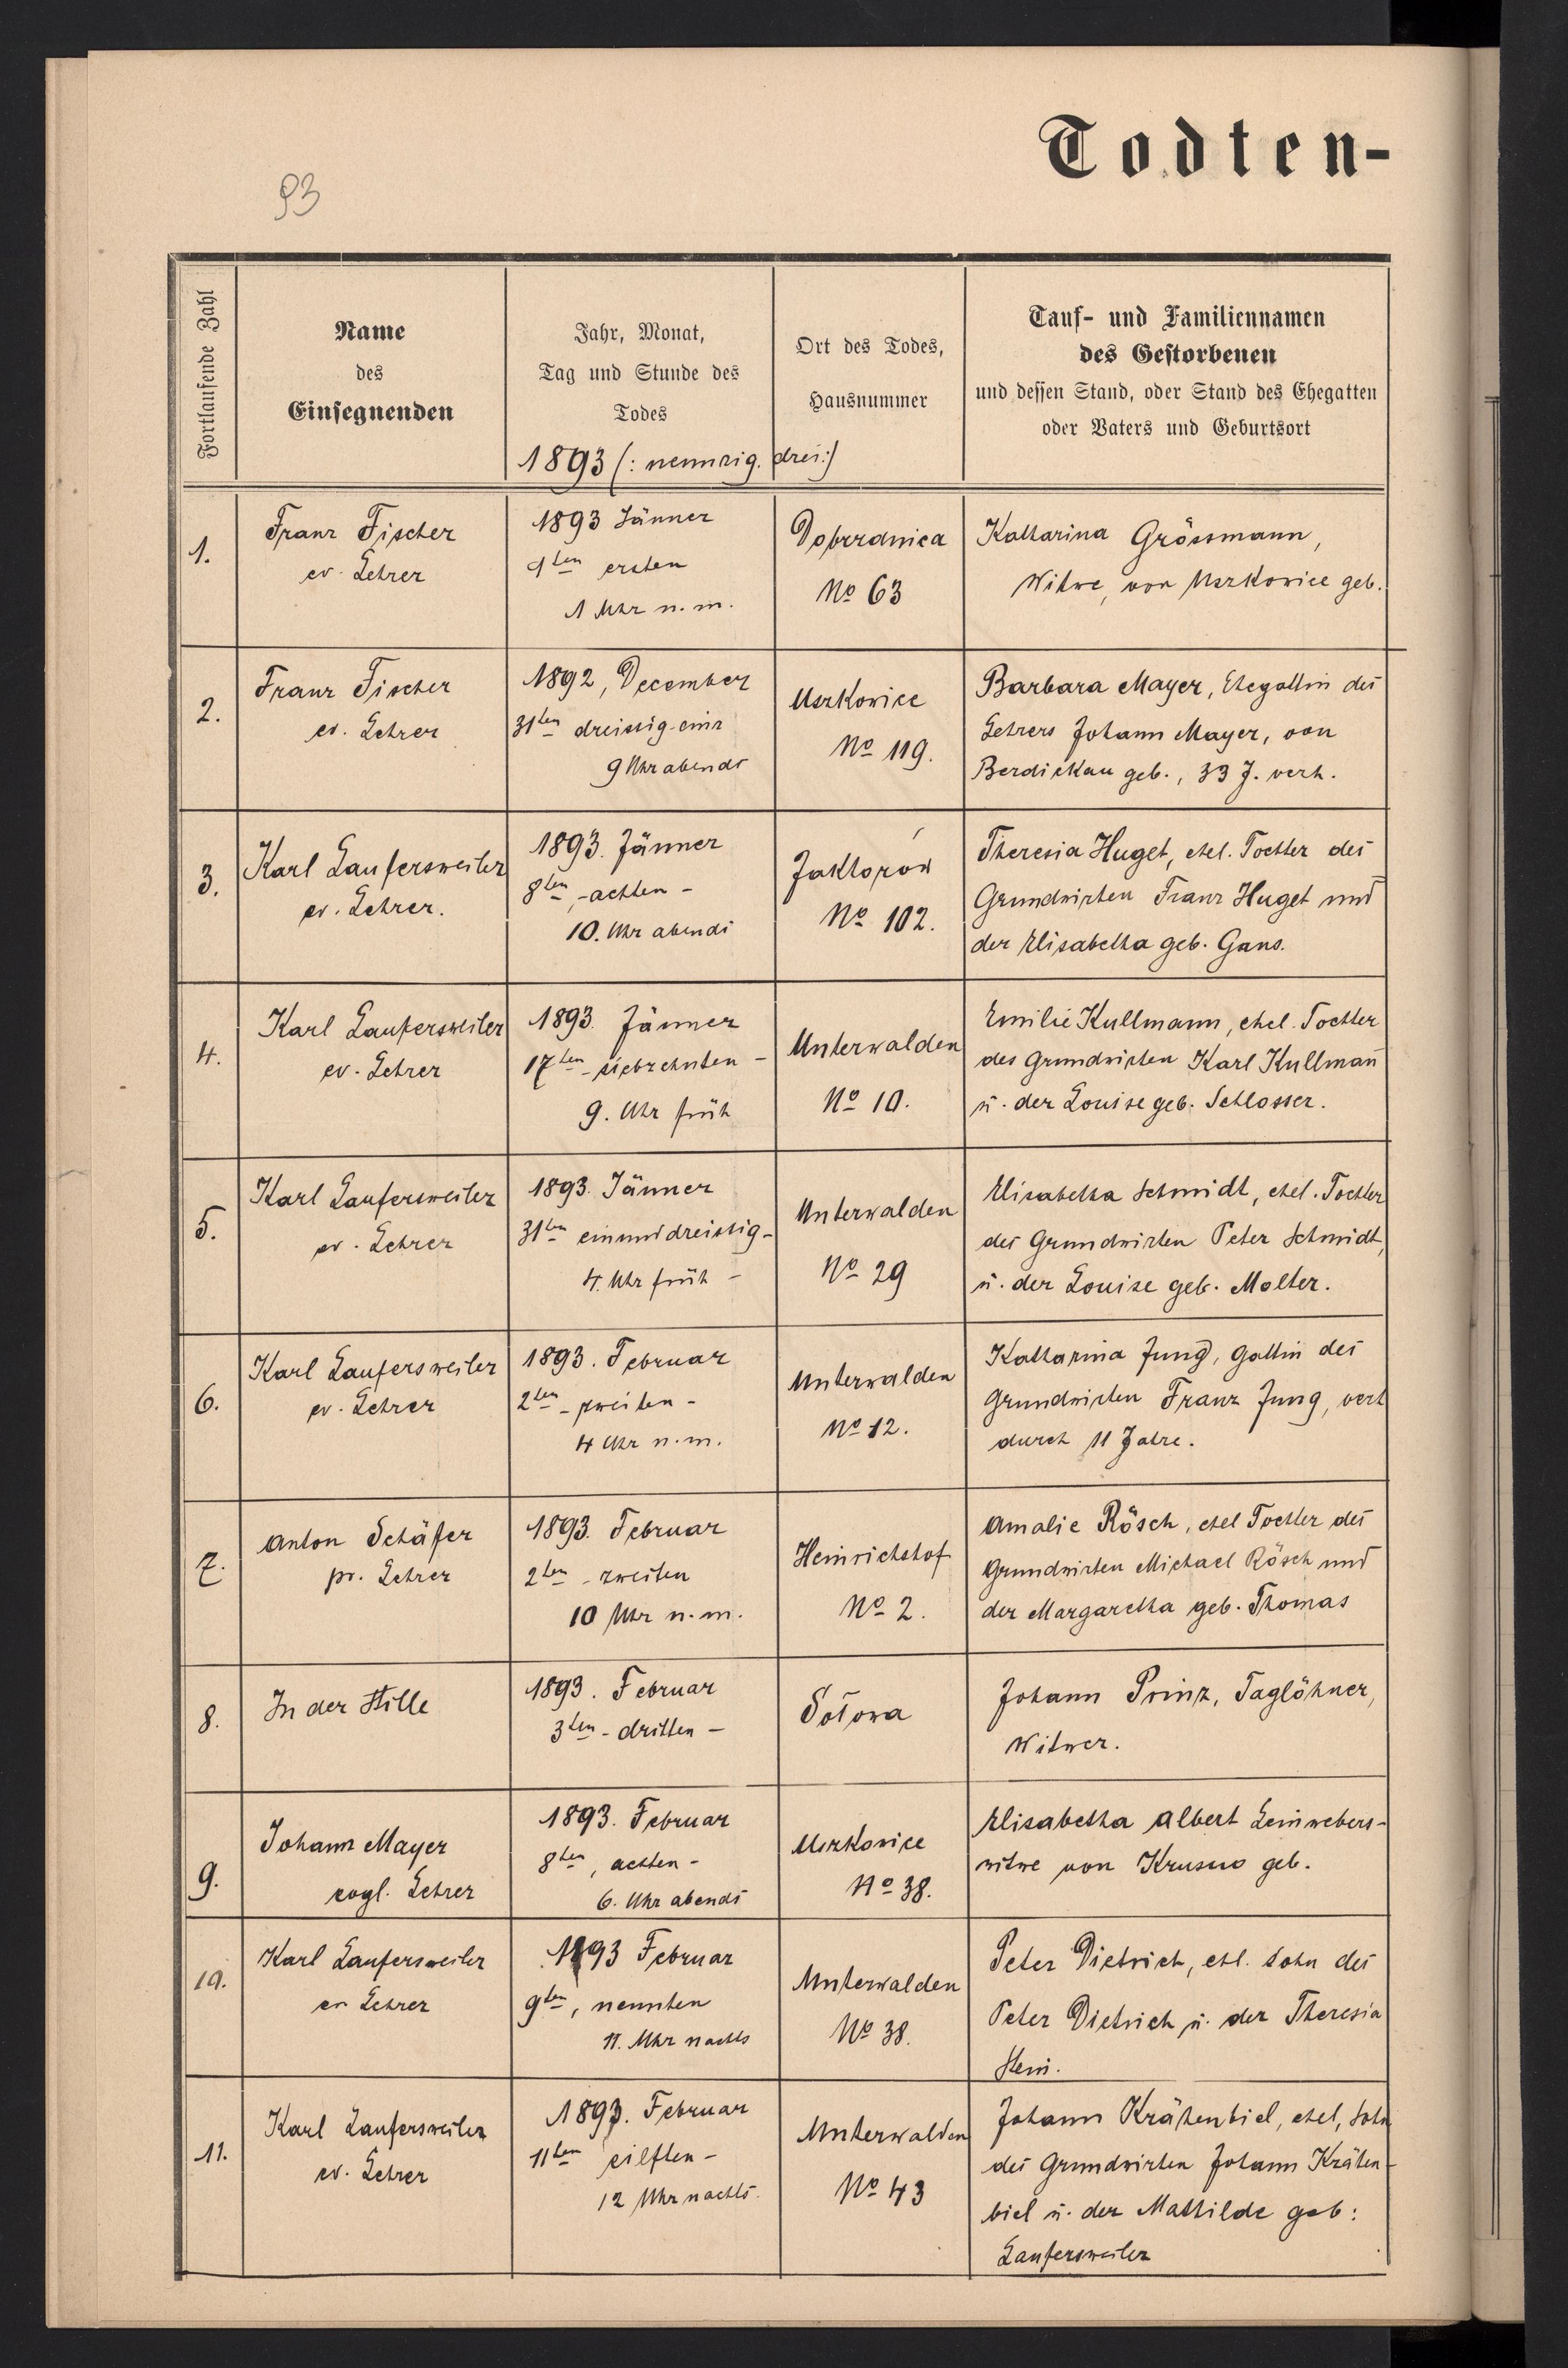 Todten-
93
Fortlaufende Zahl
Name
des
Einsegnenden
Jahr, Monat,
Tag und Stunde des
Todes
Ort des Todes,
Hausnummer
Tauf- und Familiennamen
des Gestorbenen
und dessen Stand, oder Stand des Ehegatten
oder Vaters und Geburtsort
1893 (: neunzig. drei:)
1.
Franz Fischer
ev. Lehrer
1893 Jänner
1ten ersten
1 Uhr n. m.
Dobrzanica
No 63
Katharina Grössmann,
Witwe, von Uszkowice geb.
2.
Franz Fischer
ev. Lehrer
1892, December
31ten dreissig-eins
9 Uhr abends
Uszkowice
No 119.
Barbara Mayer, Ehegattin des
Lehrers Johann Mayer, von
Berdikau geb., 33 J. verh.
3.
Karl Laufersweiler
ev. Lehrer.
1893. Jänner
8ten, -achten -
10. Uhr abends
Jaktorów
No 102.
Theresia Huget, ehel. Tochter des
Grundwirten Franz Huget und
der Elisabetha geb. Gans.
4.
Karl Laufersweiler
ev. Lehrer
1893. Jänner
17ten - siebzehnten -
9. Uhr früh
Unterwalden
No 10.
Emilie Kullmann, ehel. Tochter
des Grundwirten Karl Kullman̄
u. der Louise geb. Schlosser.
5.
Karl Laufersweiler
ev. Lehrer
1893. Jänner
31ten einunddreissig-
4. Uhr früh -
Unterwalden
No 29
Elisabetha Schmidt, ehel. Tochter
des Grundwirten Peter Schmidt,
u. der Louise geb. Molter.
6.
Karl Laufersweiler
ev. Lehrer
1893. Februar
2ten - zweiten -
4 Uhr n. m.
Unterwalden
No 12.
Katharina Jung, Gattin des
Grundwirten Franz Jung, verh
durch 11 Jahre.
7.
Anton Schäfer
pr. Lehrer
1893. Februar
2ten - zweiten
10 Uhr n. m.
Heinrichshof
No 2.
Amalie Rösch, ehel Tochter des
Grundwirten Michael Rösch und
der Margaretha geb. Thomas
8.
In der Stille
1893. Februar
3ten - dritten -
Sołowa
Johann Prinz, Taglöhner,
Witwer.
9.
Johann Mayer
evgl. Lehrer
1893. Februar
8ten, achten -
6. Uhr abends
Uszkowice
No 38.
Elisabetha Albert Leinwebers-
witwe von Krusno geb.
10.
Karl Laufersweiler
ev Lehrer
1893 Februar
9ten, neunten
11. Uhr nachts
Unterwalden
No 38.
Peter Dietrich, ehl. Sohn des
Peter Dietrich u. der Theresia
Hein.
11.
Karl Laufersweiler
ev. Lehrer
1893. Februar
11ten eilften -
12 Uhr nachts.
Unterwalden
No 43
Johann Krähenbiel, ehel, Sohn
des Grundwirten Johann Krähen-
biel u. der Mathilde geb:
Laufersweiler